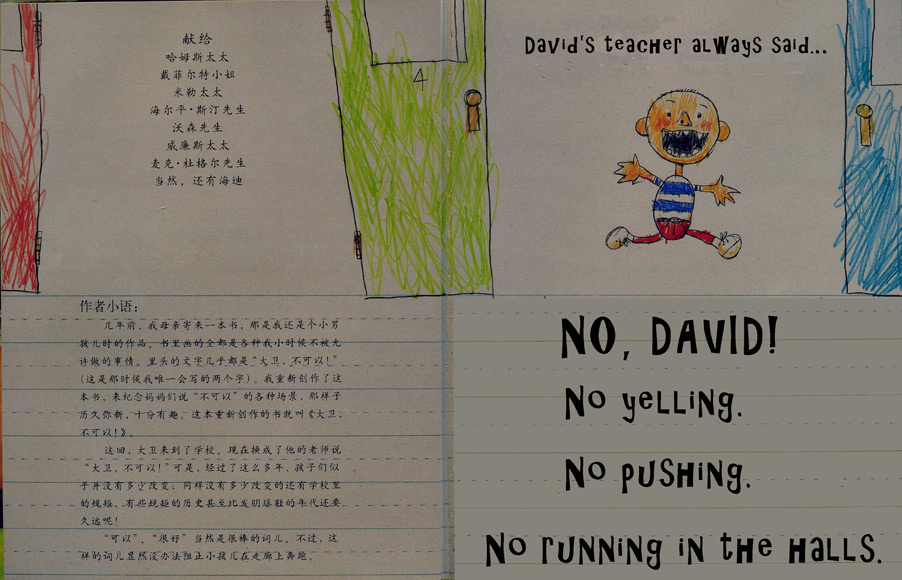 献给
哈姆斯太太
戴菲尔特小姐
米勒太太
海尔平·斯汀先生
沃森先生
威廉斯太太
麦克·杜格尔先生
当然，还有海迪
4
David's teacher always said...
作者小语：
几年前，我母亲寄来一本书，那是我还是个小男
孩儿时的作品。书里画的全都是各种我小时候不被允
许做的事情。里头的文字几乎都是“大卫，不可以！”
（这是那时候我唯一会写的两个字）。我重新创作了这
本书，来纪念妈妈们说“不可以”的各种场景，那样子
历久弥新，十分有趣。这本重新创作的书就叫《大卫，
不可以！》。
这回，大卫来到了学校。现在换成了他的老师说
“大卫，不可以！”可是，经过了这么多年，孩子们似
乎并没有多少改变；同样没有多少改变的还有学校里
的规矩，有些规矩的历史甚至比发明球鞋的年代还要
久远呢！
“可以”、“很好”当然是很棒的词儿。不过，这
样的词儿显然没办法阻止小孩儿在走廊上奔跑。
NO, DAVID!
No yelling.
No pushing.
No running in the halls.